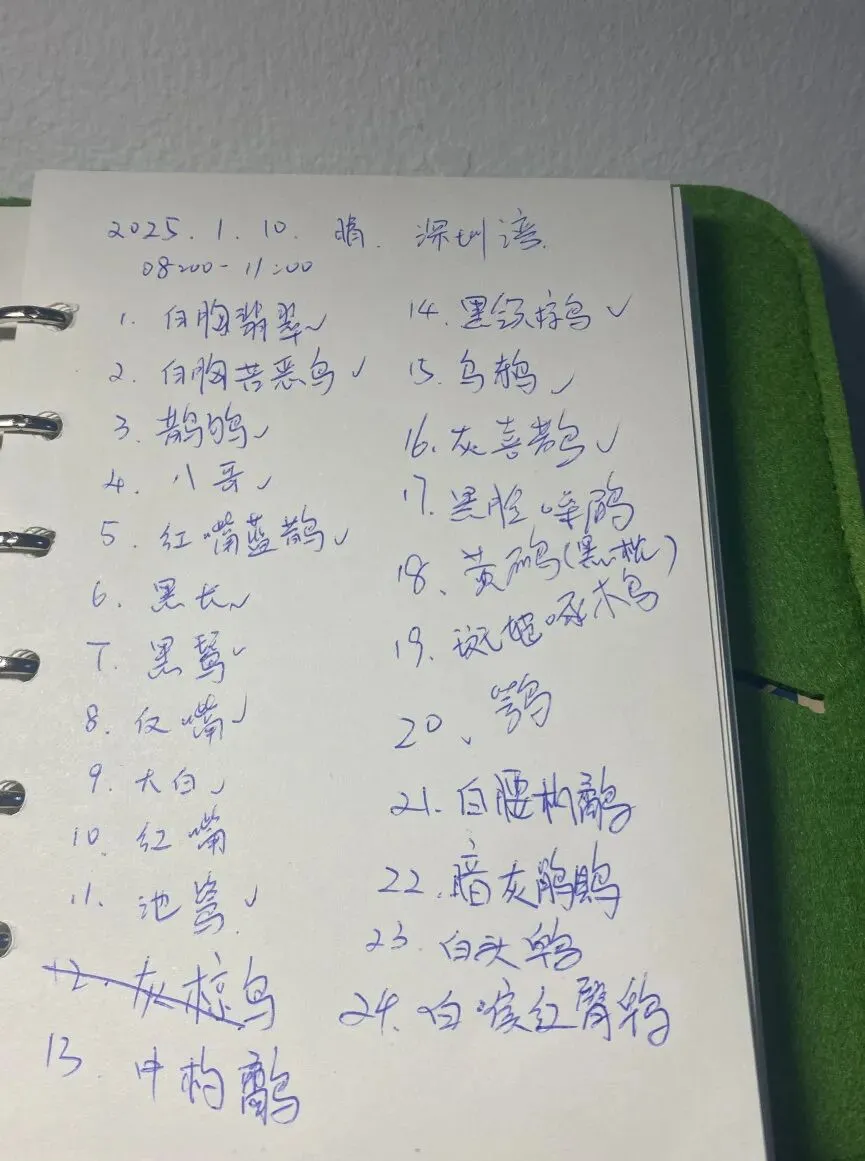 2025.1.10. 晴. 深圳湾.
08:00-11:00
1. 白胸翡翠✓
2. 白胸苦恶鸟✓
3. 鹊鸲✓
4. 八哥✓
5. 红嘴蓝鹊✓
6. 黑长✓
7. 黑鸢✓
8. 反嘴✓
9. 大白✓
10. 红嘴
11. 池鹭✓
12. 灰椋鸟
13 中杓鹬
14. 黑领椋鸟✓
15. 乌鸫✓
16. 灰喜鹊✓
17. 黑脸噪鹛
18. 黄鹂(黑枕)
19. 斑姬啄木鸟
20、鹗
21. 白腰杓鹬
22. 暗灰鹃鵙
23. 白头鹎
24. 白喉红臀鹎